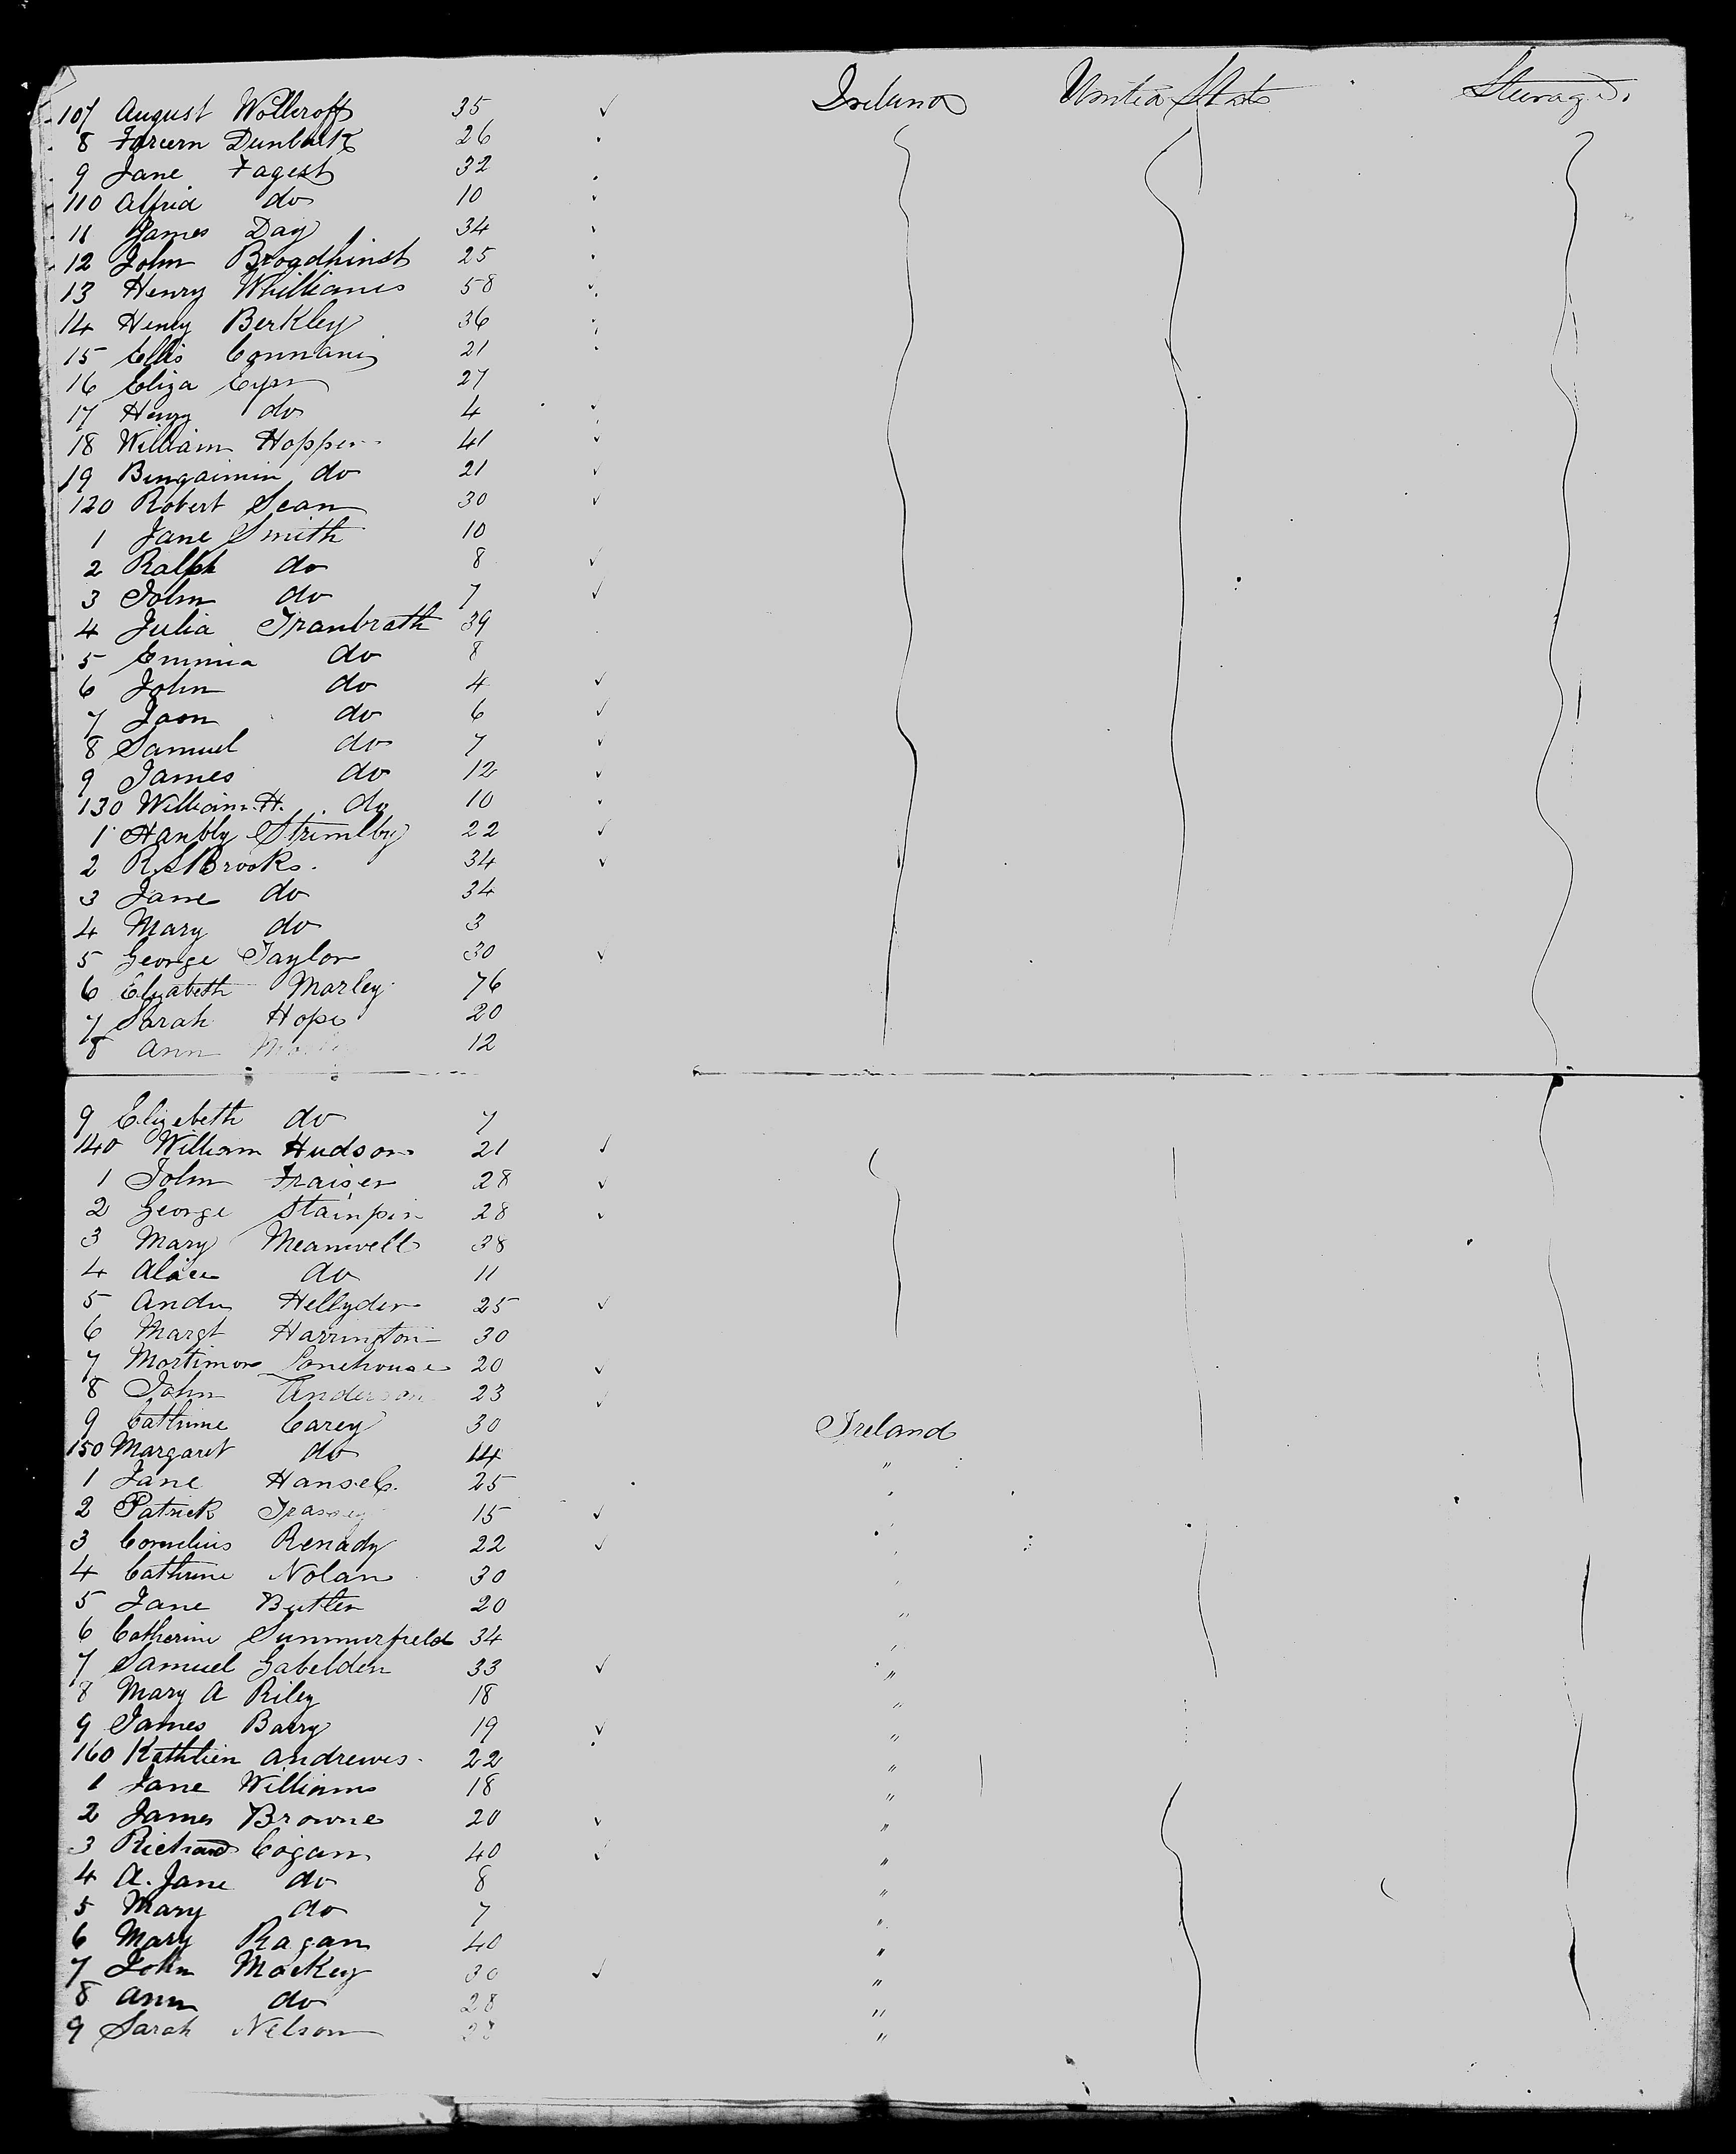 107 August Wollcroft 35 Ireland United States Steerage
8 Dunbulk 26
9 Jane Fagest 32
110 Alfrid do 10
11 James Day 34
12 John Broadhinst 25
13 Henry Whillianis 58
14 Henry Berkley 36
15 Ellis 21
16 Eliza 27
17 Henry do 4
18 William Hopper 41
19 Bengaimin do 21
120 Robert Sean 30
1 Jane Smith 10
2 Ralph do 8
3 John do 7
4 Julia Tranbrath 39
5 Emmia do 8
6 John do 4
7 Jaon do 6
8 Samuel do 7
9 James do 12
130 William H. do 10
1 Hanbly Strimlby 22
2 R S Brooks. 34
3 Jane do 34
4 Mary do 3
5 George Taylor 30
6 Elizabeth Marley 76
7 Sarah Hope 20
8 Ann 12
9 Elizebeth do 7
140 William Hudson 21
1 John Fraiser 28
2 George Stainpin 28
3 Mary Meanwell 38
4 Alice do 11
5 Andu Hellyder 25
6 Margt Harrington 30
7 Mortimore Lonehouse 20
8 John Anderson 23
9 Cathrine Carey 30 Ireland
150 Margaret do 14 "
1 Jane Hansel 25 "
2 Patrick 15 "
3 Cornelius Renady 22 "
4 Cathrine Nolan 30 "
5 Jane Butler 20 "
6 Catherine Summurfield 34 "
7 Samuel Gabelden 33 "
8 Mary A Riley 18 "
9 James Barry 19 "
160 Kathlien Andrewes 22 "
1 Jane Williams 18 "
2 James Browne 20 "
3 Richard Cogan 40 "
4 A. Jane do 8 "
5 Mary do 7 "
6 Mary Ragan 40 "
7 John Mackey 30 "
8 Ann do 28 "
9 Sarah Nelson "